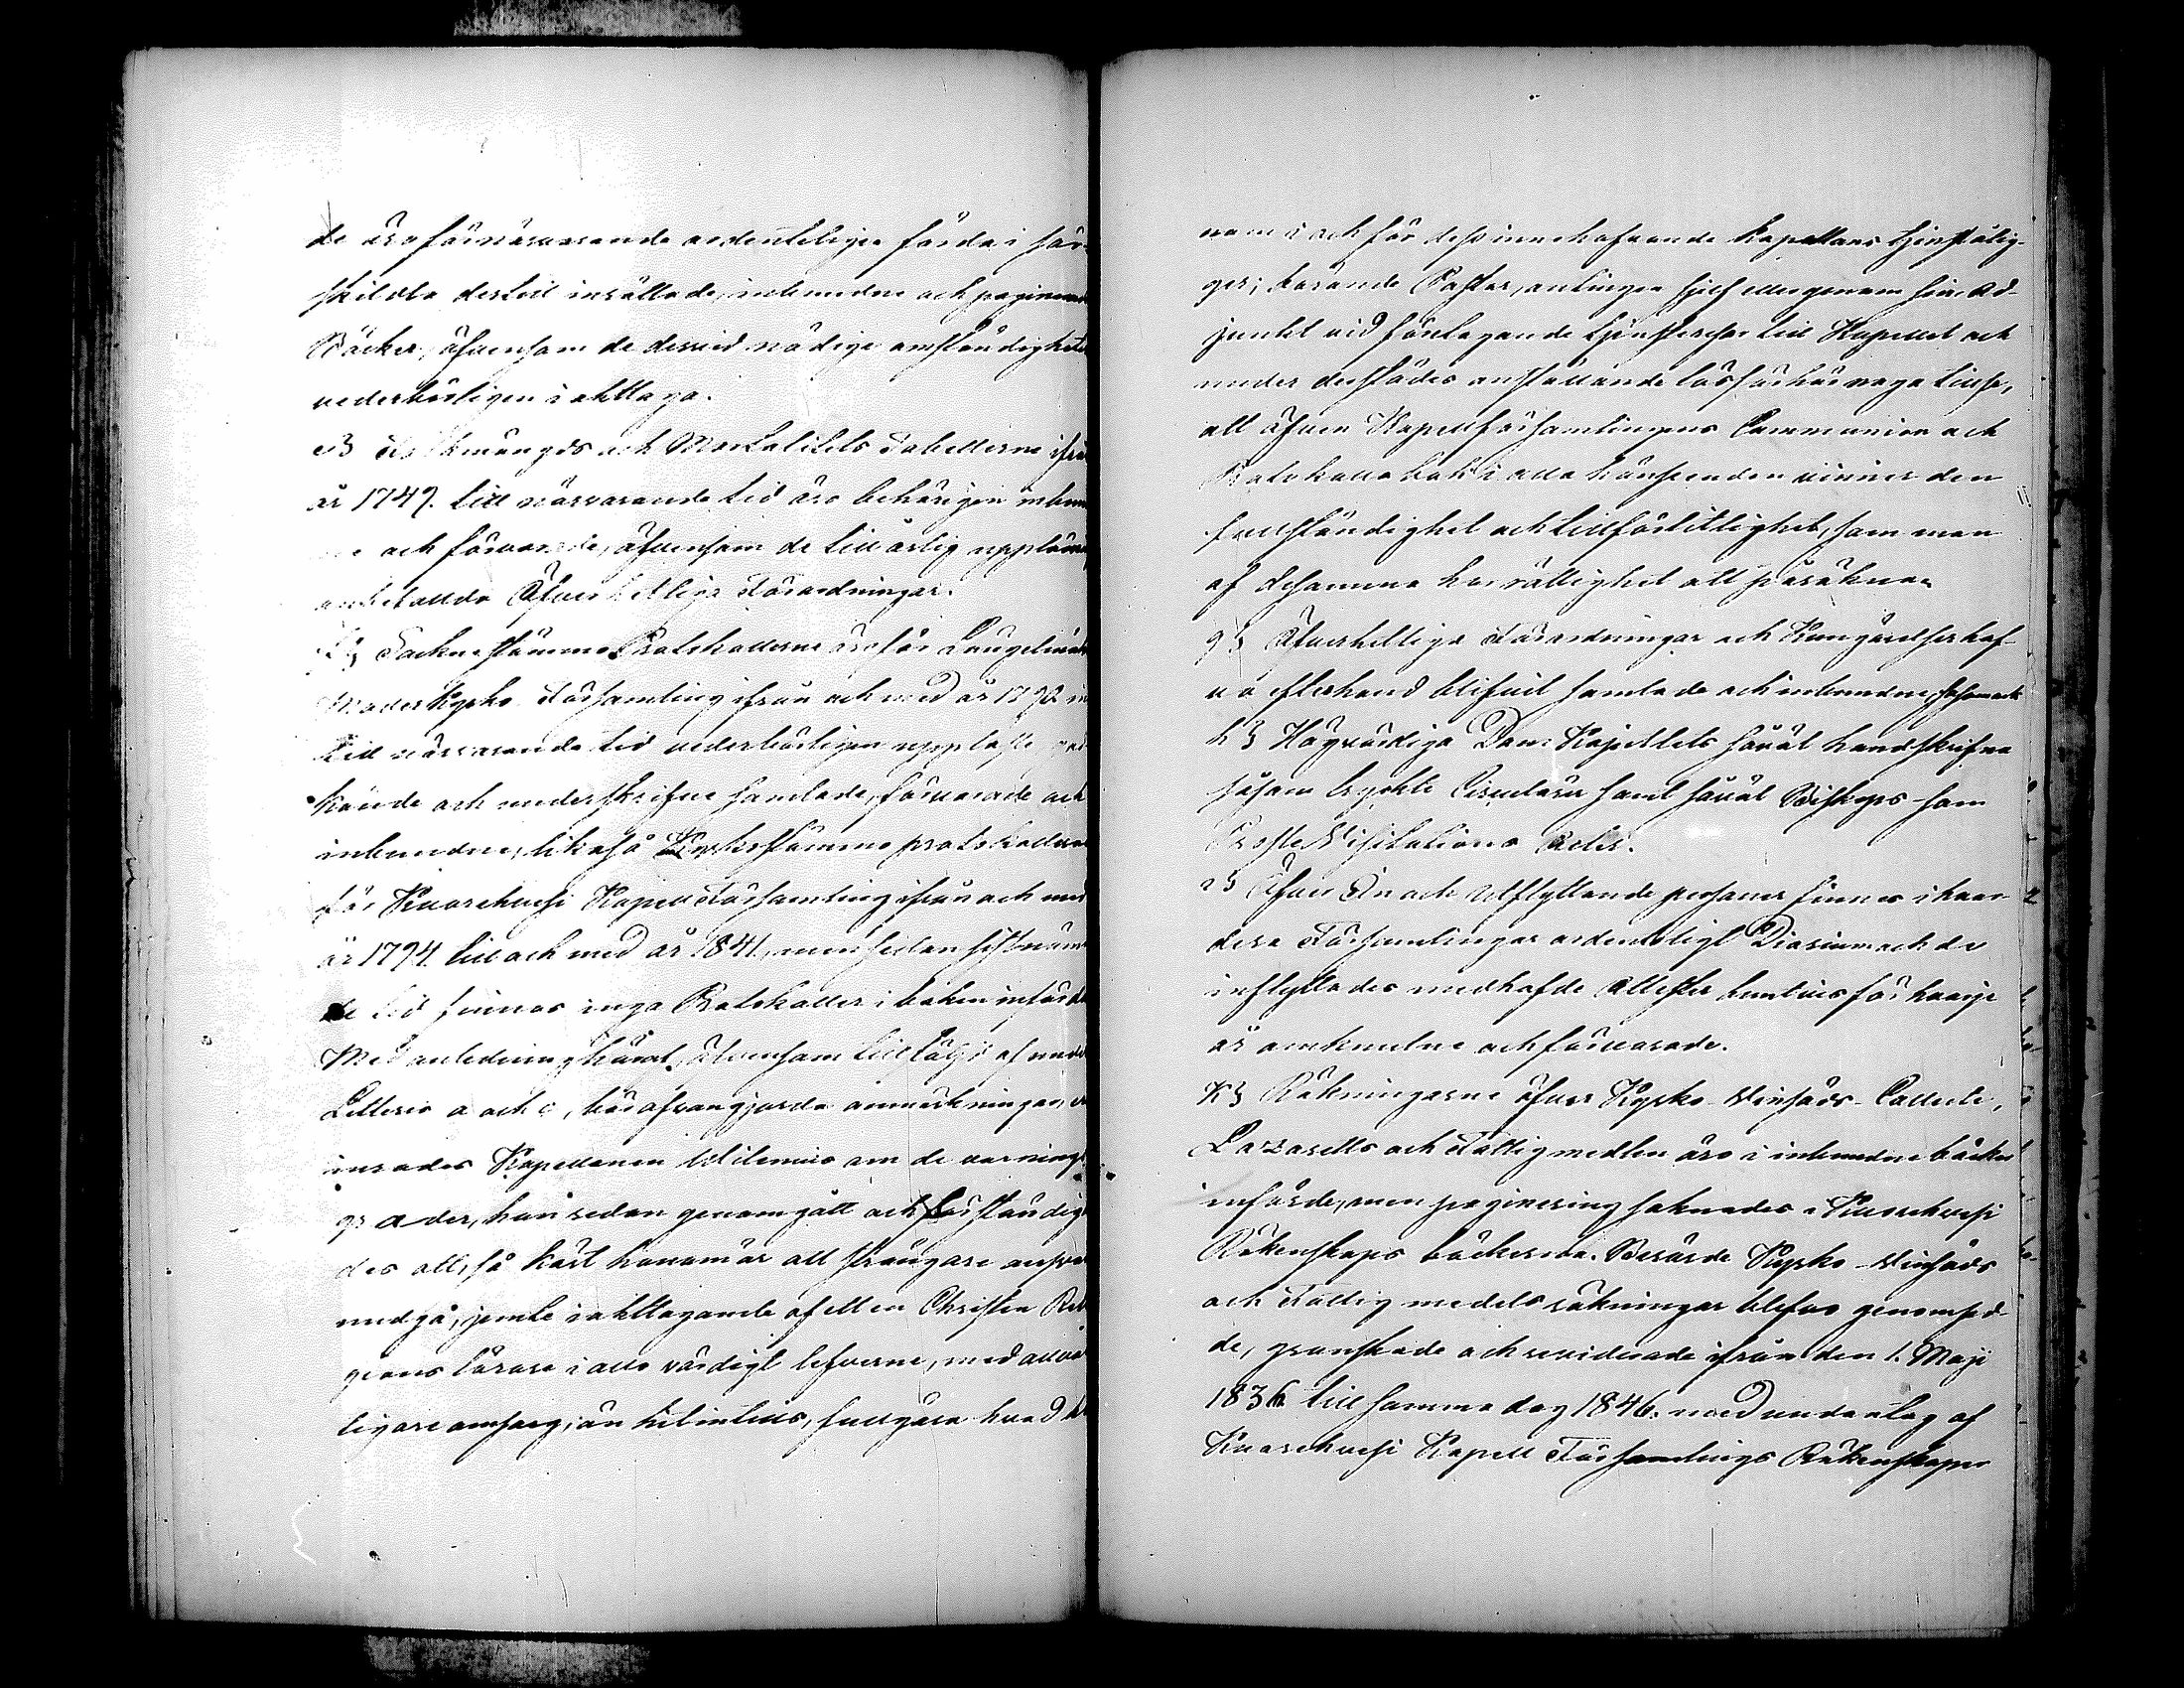 de äro för närvarande ordenteligen förda i sär-
skildta dertill inrättade, inbundne och paginerade
Böcker, äfvensom de dervid nödige omständigheter
vederbörligen iakttaga.
e§ Folkmängds och Mortalitets Tabellerne ifrån
år 1749. till närvarande tid äro behörigen inbun-
ne och förvarade, äfvensom de till årlig uppläsning
anbefallda Öfverhetliga Förordningar.
f§ Sockne stämmo Protokollerne äro för Längelmäki
Moderkyrko Församling ifrån och med år 1792 in
till närvarande tid vederbörligen upplaste,
kände och underskrifne samlade, förvarade och
inbundne, likaså Kyrkostämmo protokollerne
för Kuorehvesi Kapell Församling ifrån och med
år 1794 till och med år 1841, men sedan sistnäm-
de tid finnas inga Protokoller i boken införde
Med anledning häraf, äfvensom till följe af under
Litteris a och c, här ofvan gjorda anmärkningar, er-
inrades Kapellanen Wilenius om de varnings
grader, han redan genomgått och förständiga-
des att, så kärt honom är att strängare ansvar
undgå, jemte iakttagande af ett en Christen Reli-
gions lärare i allo värdigt lefverne, med allvar-
ligare omsorg, än hitintills, fullgöra hvad
nom i och för dess innehafvande Kapellans tjenst ålig-
ger; börande Pastor, antingen sjelf eller genom sin Ad-
junkt vid företagande tjensteresor till Kapellet och
under derstädes anställande läsförhör noga tillse,
att äfven Kapellförsamlingens Communion och
Protokolls bok i alla hänseenden vinner den
fullständighet och tillförlitlighet, som man
af desamma har rättighet att påräkna.
g§ Öfverhetliga Förordningar och Kungörelser haf-
va efterhand blifvit samlade och inbundne, såsom ock
h§ Högvördiga Dom Kapitlets såväl handskrifna
såsom tryckte Circulärer samt såväl Biskops som
Prosts Visitations Acter.
i§ Öfver In och Utflyttande personer finnes i hvar-
dera Församlingar ordentligt Diarium och de
inflyttades medhafde Attester buntvis för hvarje
år omknutne och förvarade.
k§ Räkningarne öfver Kyrko- Vinsåds- Collecte,
Lazaretts och Fattigmedlen äro i inbundne böcker
införde, men paginering saknades i Kuorehvesi
Räkenskaps böckerna. Berörde Kyrko- Vinsåds
och Fattig medels räkningar blefvo genomsed-
de, granskade och reviderade ifrån den 1. Maji
1836 till samma dag 1846. med undantag af
Kuorehvesi Kapell Församlings Räkenskaper